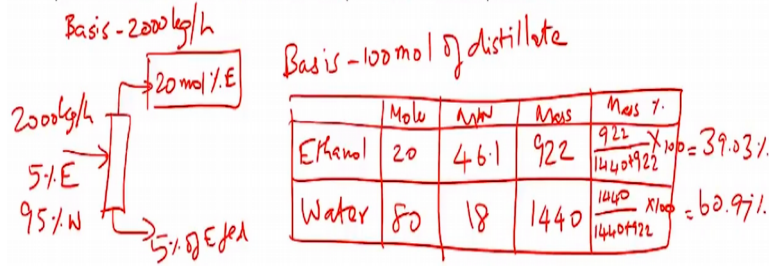 Basis-2000kg/h
20 mol % E
2000kg/h
5% E
95% W
5% of E fed
Basis-100mol of distillate
Mole MW Mass Mass %
Ethanol 20 46.1 922 922/1440+922 X100 = 39.03%
Water 80 18 1440 1440/1440+922 X100 = 60.97%